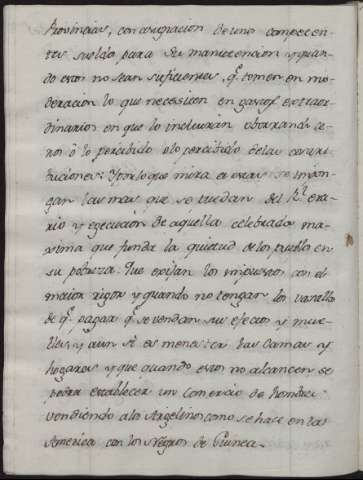 Provincias, con asignacion de unos competen-
tes sueldos para su manutencion y quan-
do estos no sean suficientes, q.e tomen en mo-
deracion lo que necessiten en gastos extraor-
dinarios en que lo incluiran
ros ô lo percibido de las contri-
buciones: Y por lo que mira a estas se impon-
gan las mas que se puedan del R.l era-
rio y egecucion de aquella celebrada ma-
xima que funda la quietud de los Pueblos en
su pobreza. Que exijan los impuestos con el
maior rigor y quando no tengan los vasallos
de q.e pagar q.e se vendan sus efectos y mue-
bles, y aun si es menester las camas y
hogares y que quando estos no alcancen se
podra establecer un Comercio de hombres
vendiendo a los Argelinos como se hace en las
America con los Negros de Guinea.